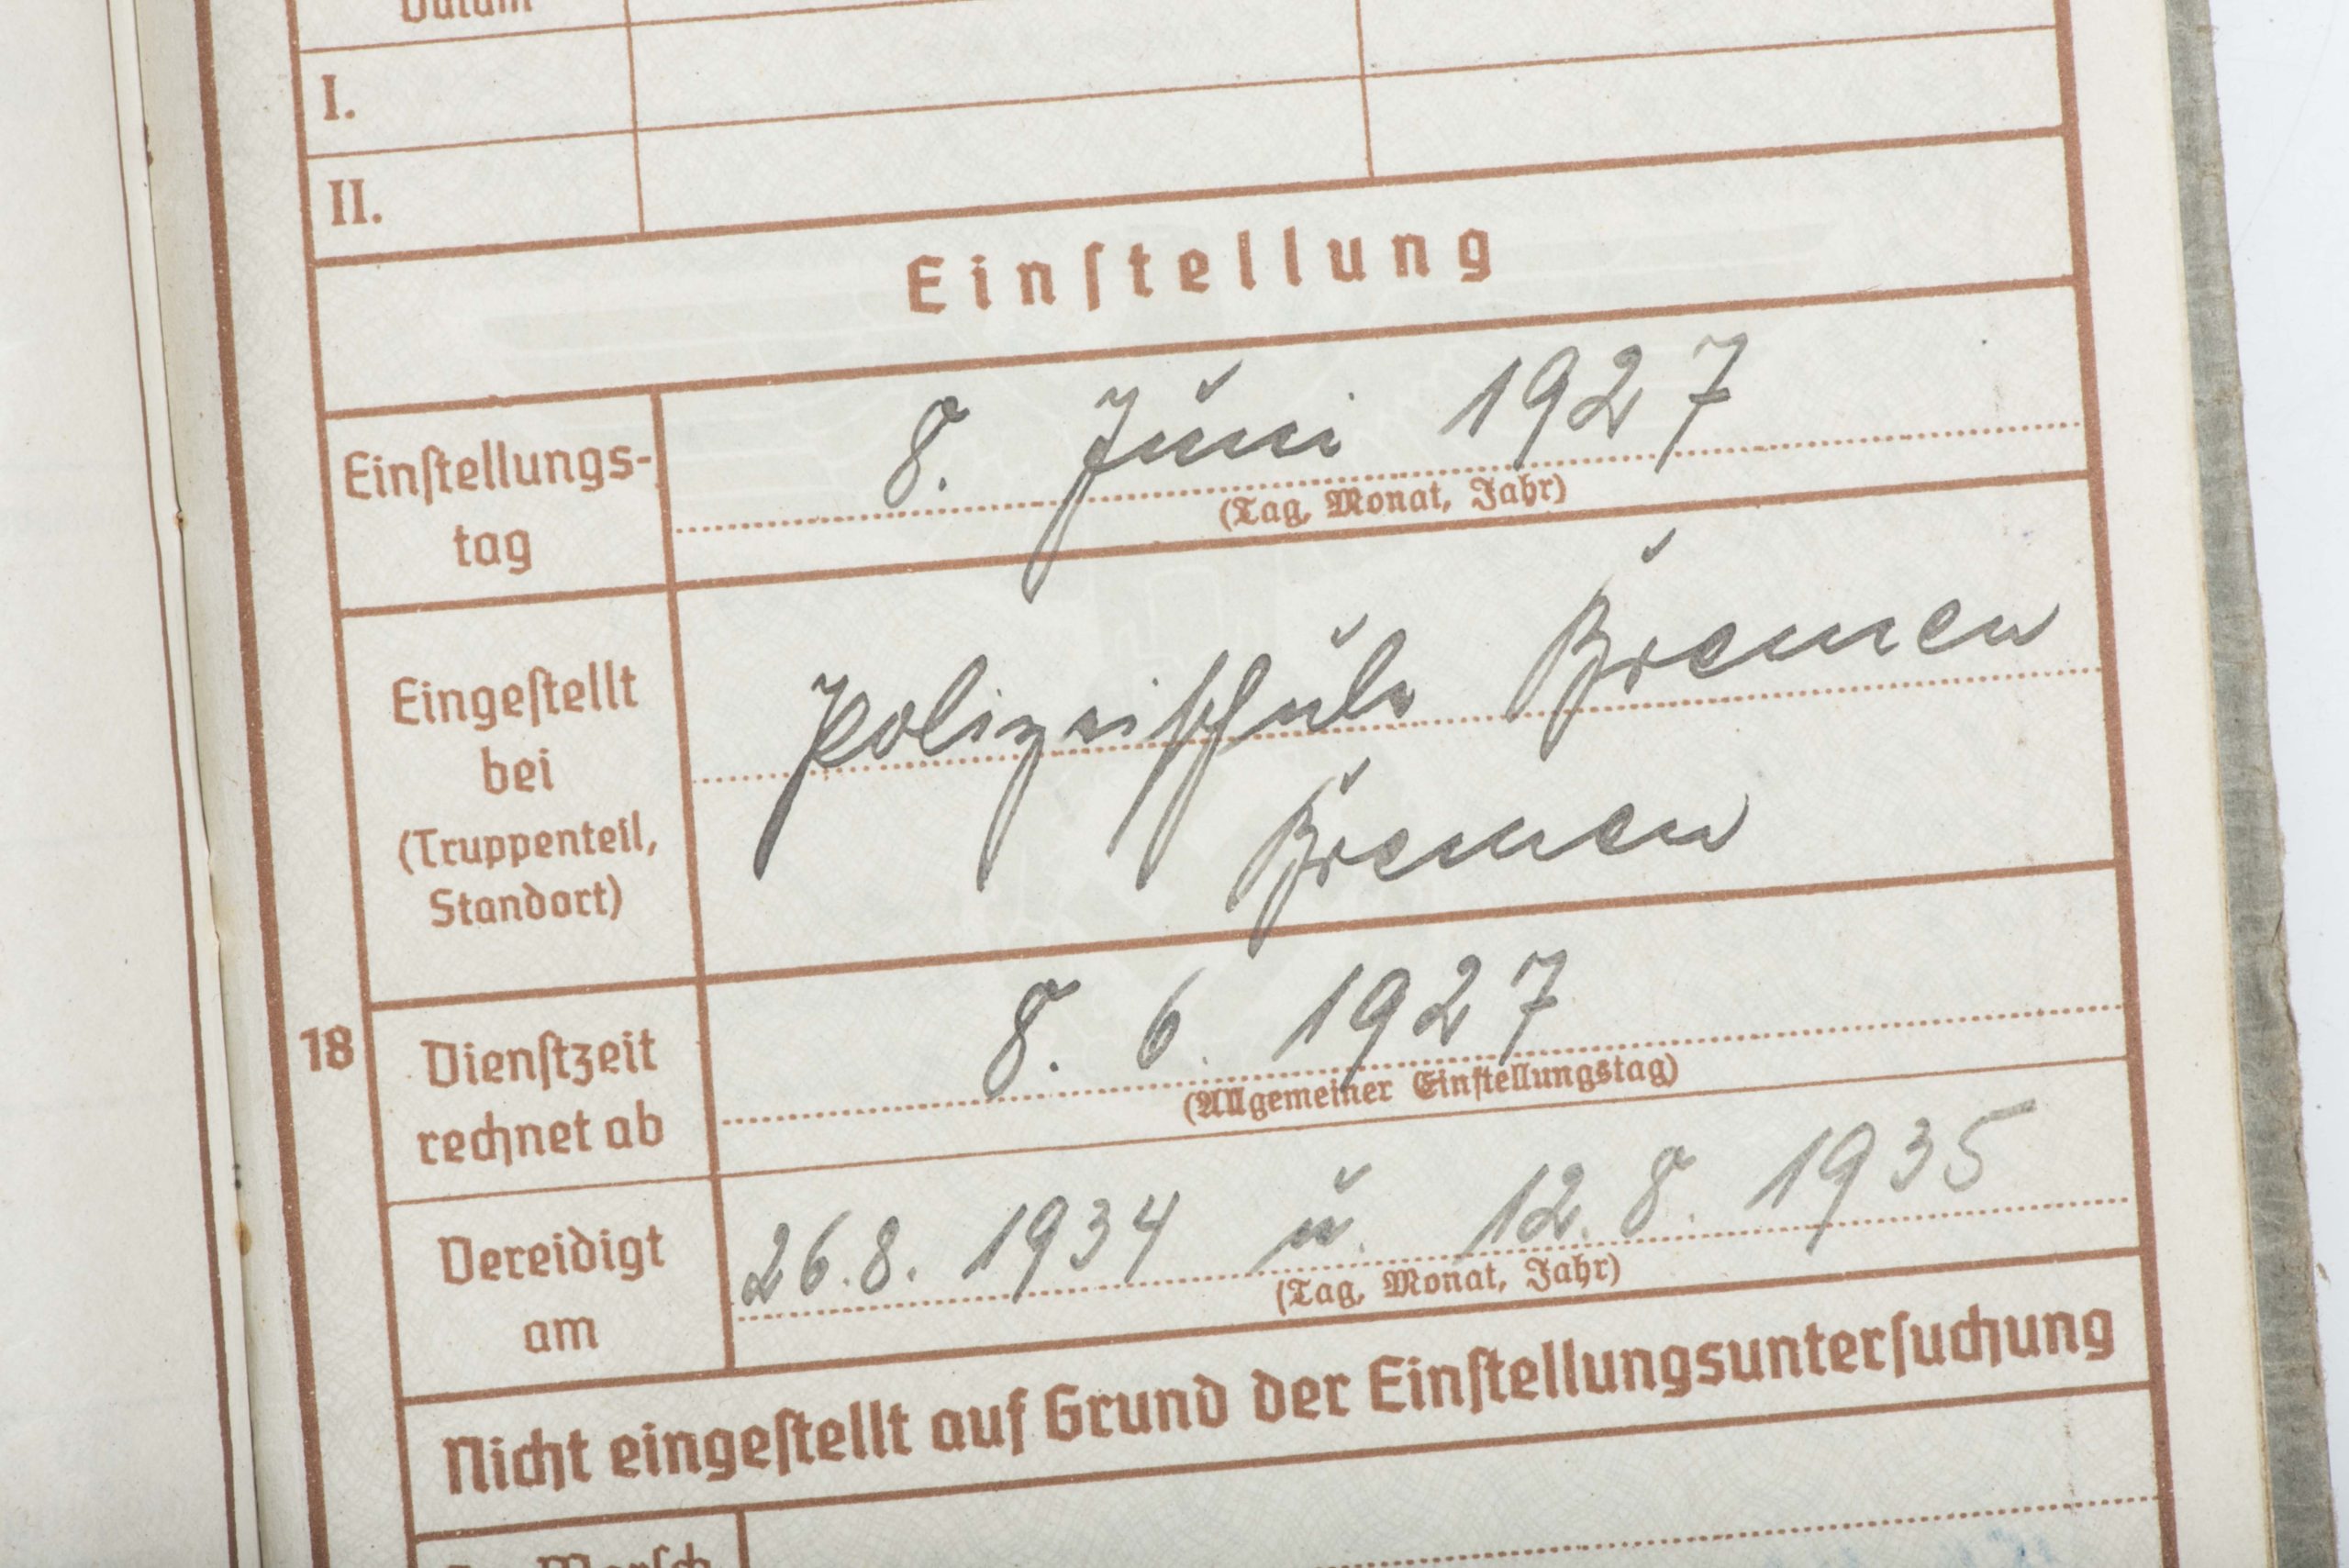 Datum
I.
II.
Einſtellung
Einſtellungs-
tag
8. Juni 1927
(Tag, Monat, Jahr)
Eingeſtellt
bei
(Truppenteil,
Standort)
Polizeiſchule Bremen
Bremen
18
Dienſtzeit
rechnet ab
8. 6. 1927
(Allgemeiner Einſtellungstag)
Vereidigt
am
26.8. 1934 u. 12. 8. 1935
(Tag, Monat, Jahr)
Nicht eingeſtellt auf Grund der Einſtellungsunterſuchung